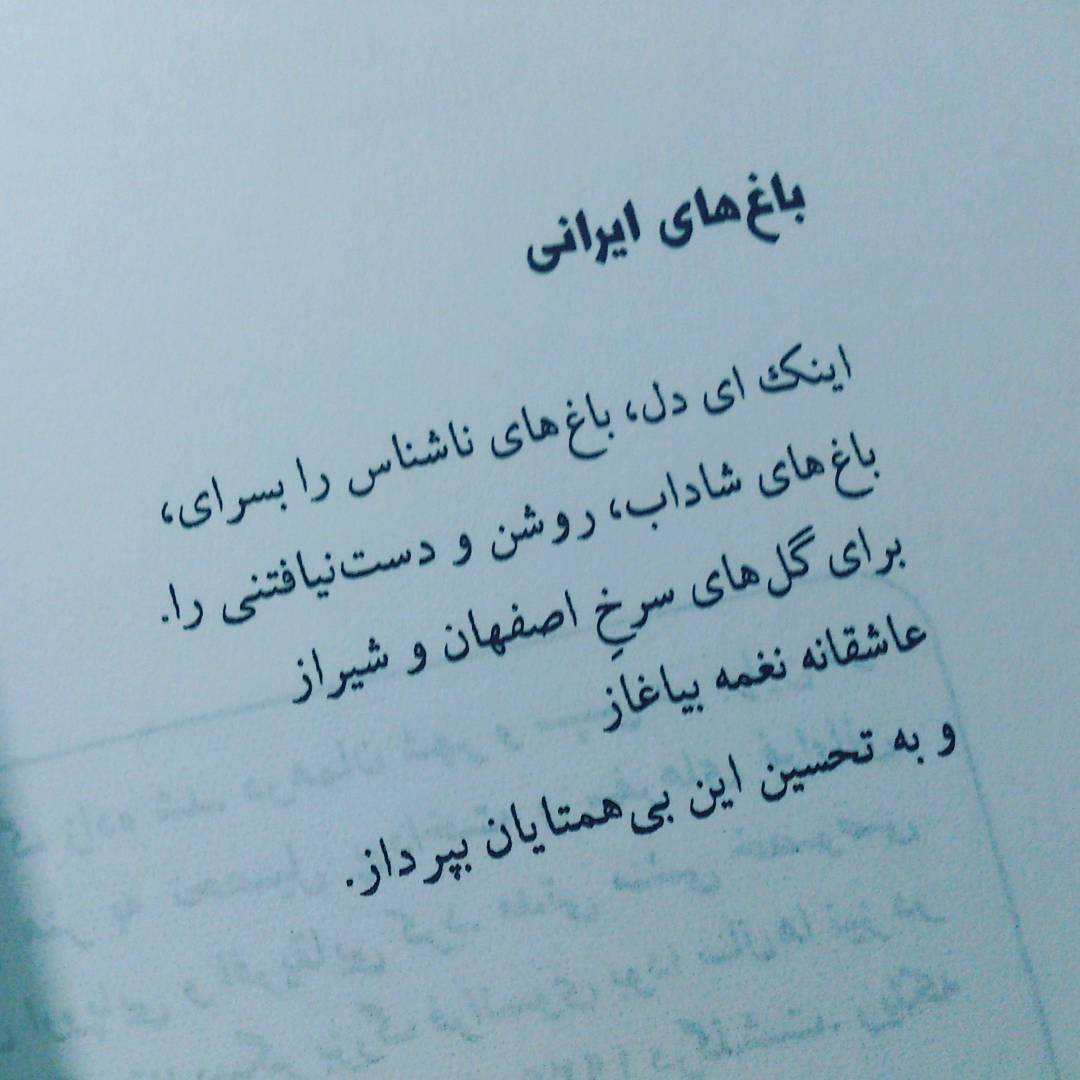 باغ‌های ایرانی
اینک ای دل، باغ‌های ناشناس را بسرای،
باغ‌های شاداب، روشن و دست‌نیافتنی را.
برای گل‌های سرخِ اصفهان و شیراز
عاشقانه نغمه بیاغاز
و به تحسین این بی‌همتایان بپرداز.